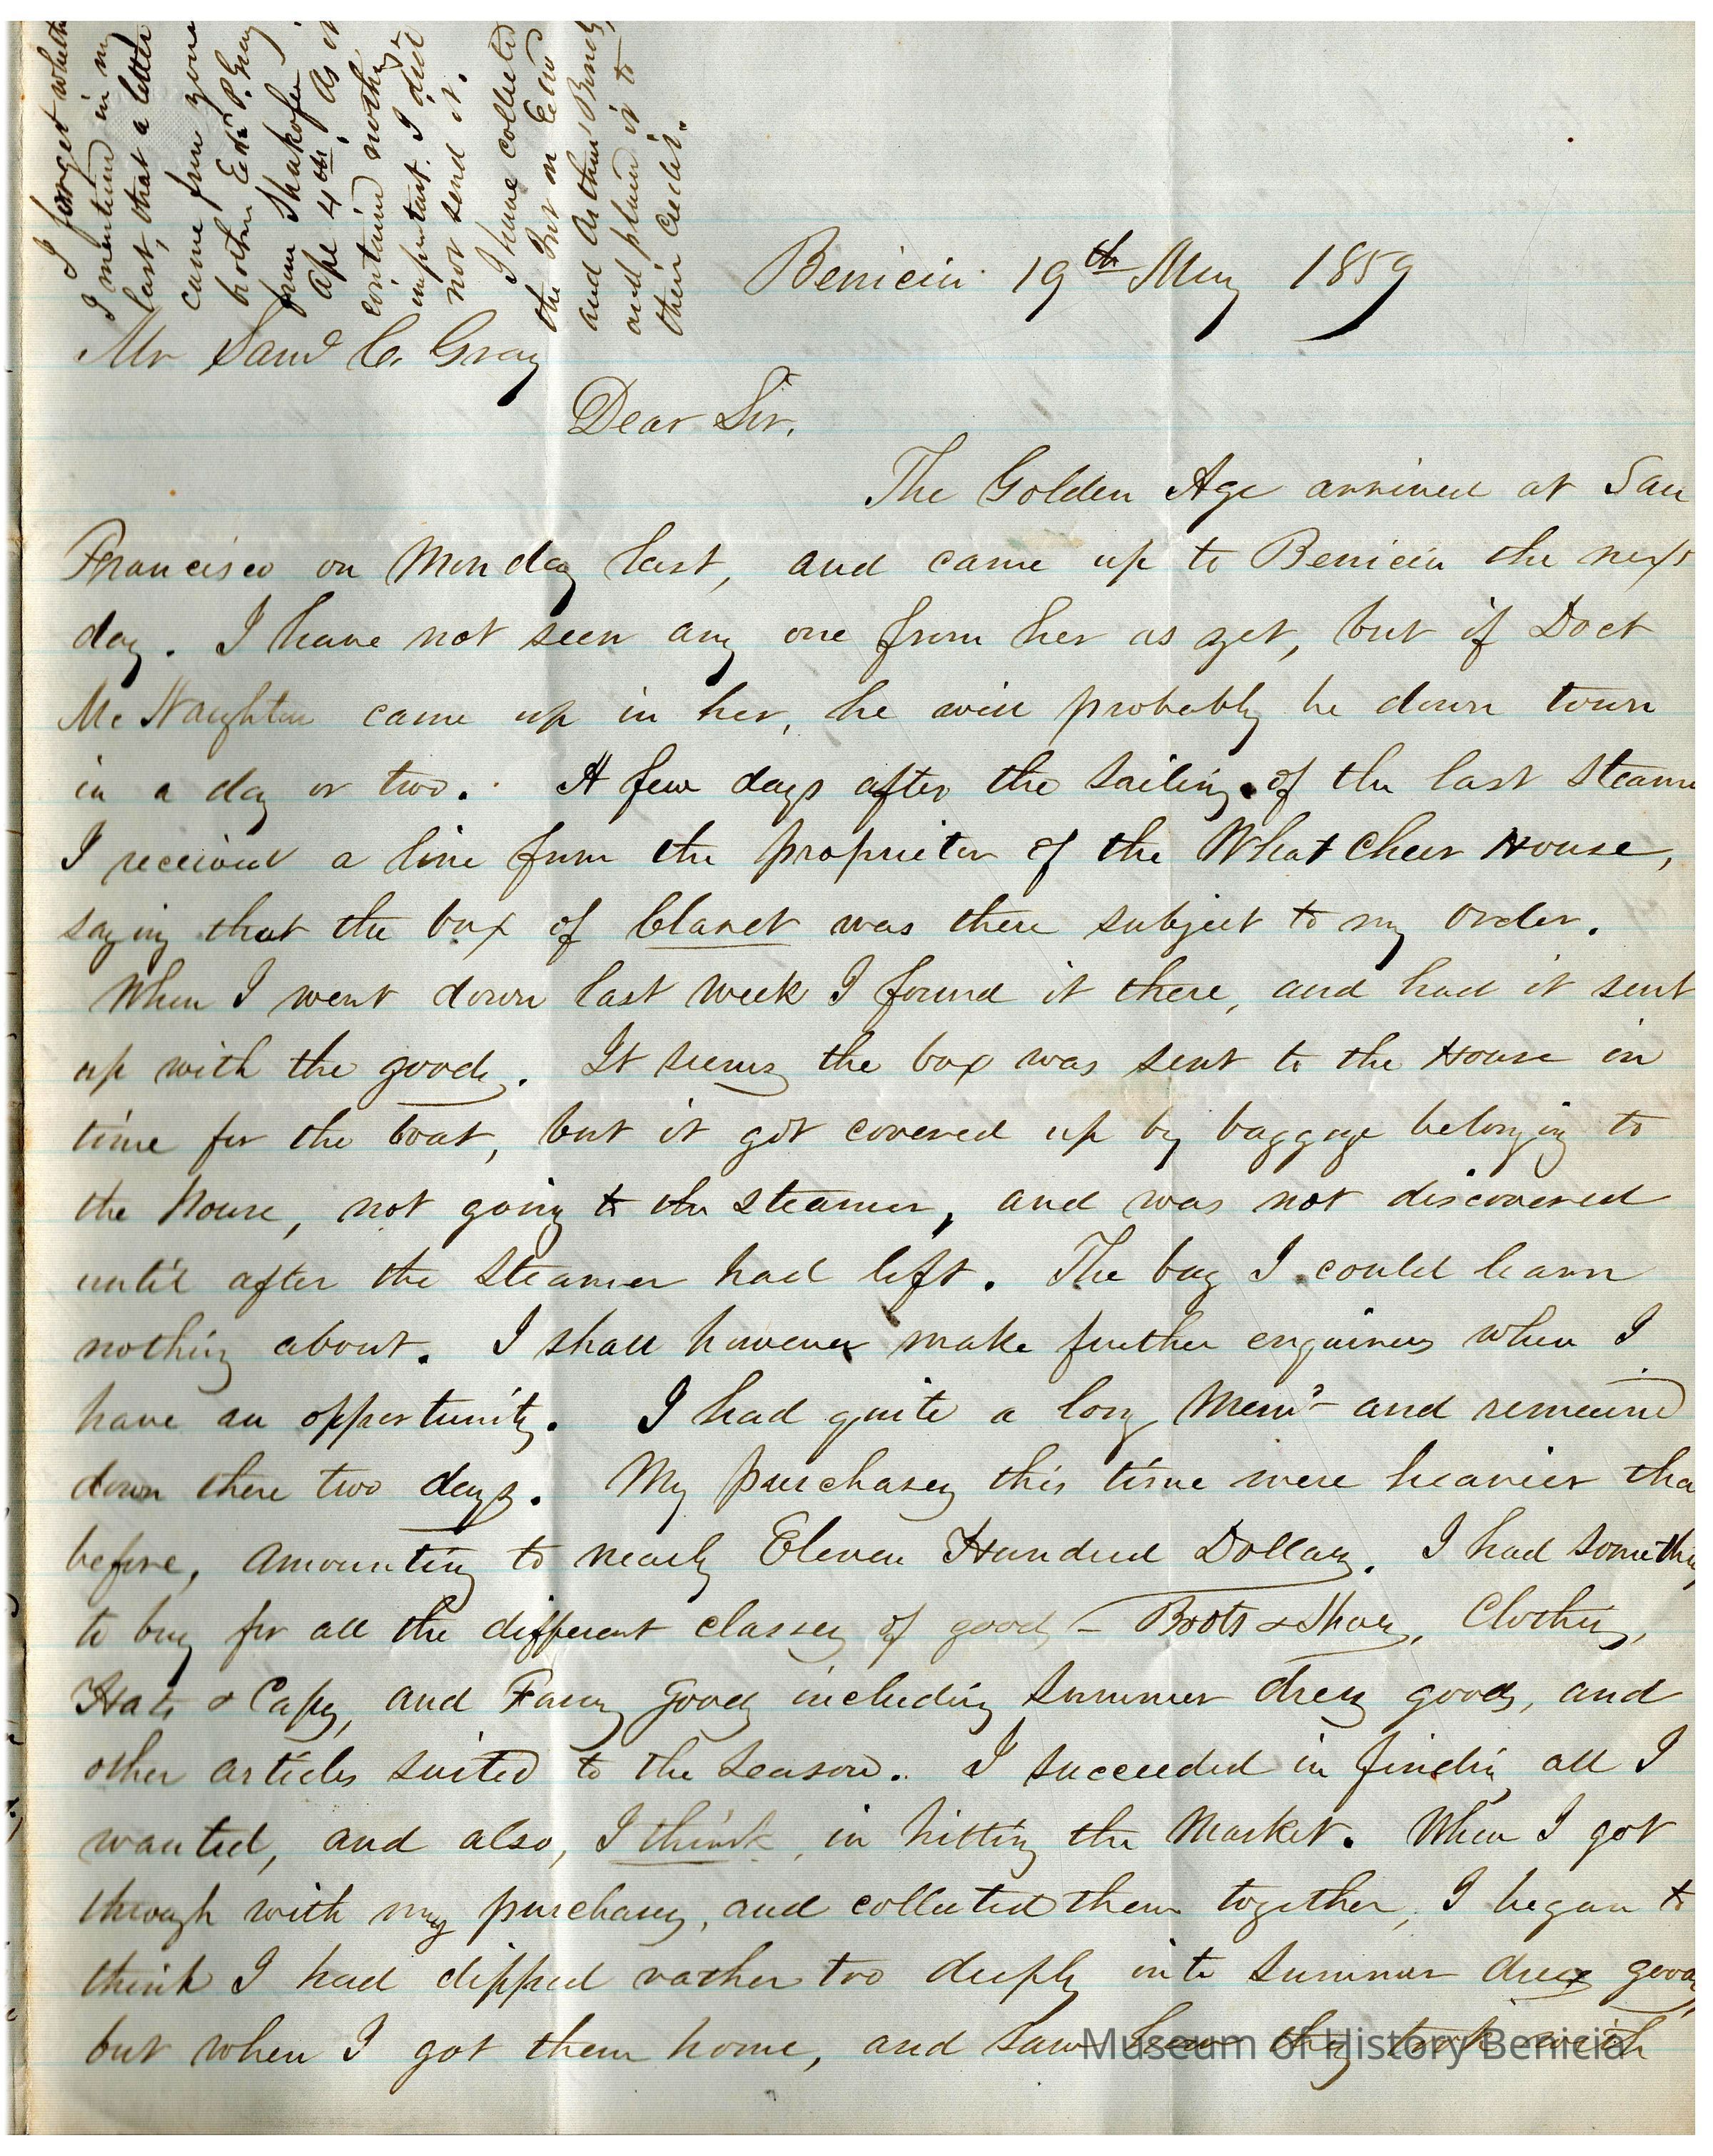 I forget whethe
I mentioned in my
last, that a letter
came from your
brother Edw P. Gray
from Shakofee
Apl 4th. As it
contained nothing
important I did
not send it.
I have collected
the Int on Ecrw
and Arthur Bnds,
and placed it to
their Credit.
Benicia 19th May 1859
Mr Saml C. Gray
Dear Sir,
The Golden Age arrived at San
Francisco on Monday last, and came up to Benicia the next
day. I have not seen any one from her as yet, but if Doct
McNaughton came up in her, he will probably be down town
in a day or two. A few days after the sailing of the last steame
I received a line from the proprietor of the What Cheer House,
saying that the box of Claret was there subject to my order.
When I went down last week I found it there, and had it sent
up with the goods. It seems the box was sent to the House in
time for the boat, but it got covered up by baggage belonging to
the House, not going to the steamer, and was not discovered
until after the steamer had left. The bag I could learn
nothing about. I shall however make further enquiries when I
have an opportunity. I had quite a long Mem° and remained
down there two days. My purchases this time were heavier tha
before, amounting to nearly Eleven Hundred Dollars. I had somethin
to buy for all the different classes of goods - Boots & Shoes, Clothing,
Hats & Caps, and Fancy Goods including summer dress goods, and
other articles suited to the season. I succeeded in finding all I
wanted, and also, I think, in hitting the Market. When I got
through with my purchases, and collected them together, I began to
think I had dipped rather too deeply into summer dress goods,
but when I got them home, and saw how they took with
Museum of History Benicia